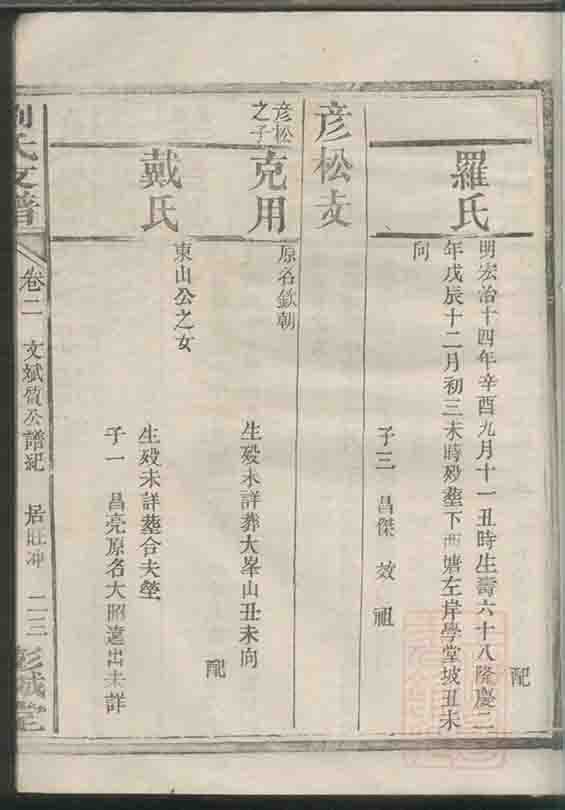 配
羅氏
明宏治十四年辛酉九月十一丑時生壽六十八隆慶二
年戊辰十二月初三未時歿塟下西塘左岸學堂坡丑未
向
子三 昌傑 效 祖
彦松支
彦松
之子
克用
原名欽朝
生歿未詳葬大峯山丑未向
配
戴氏
東山公之女
生歿未詳塟合夫塋
子一 昌亮原名大昭遠出未詳
氏支譜
卷二
文斌質公譜紀
居旺冲
二三
彭城堂